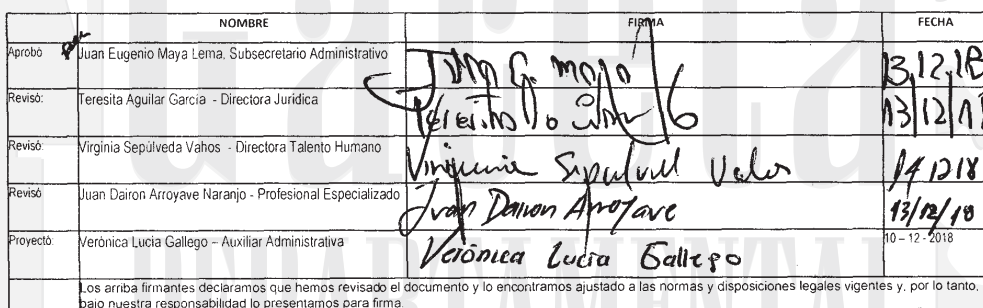 NOMBRE FIRMA FECHA
Aprobó Juan Eugenio Maya Lema, Subsecretario Administrativo Juan E. Maya 13,12,18
Revisó: Teresita Aguilar García - Directora Jurídica Teresita 13/12/1
Revisó: Virginia Sepúlveda Vahos - Directora Talento Humano Virginia 14 12 18
Revisó Juan Dairon Arroyave Naranjo - Profesional Especializado Juan Dairon Arroyave 13/12/18
Proyectó: Verònica Lucia Gallego – Auxiliar Administrativa Verónica Lucia Gallego 10 – 12 - 2018
Los arriba firmantes declaramos que hemos revisado el documento y lo encontramos ajustado a las normas y disposiciones legales vigentes y, por lo tanto,
bajo nuestra responsabilidad lo presentamos para firma.